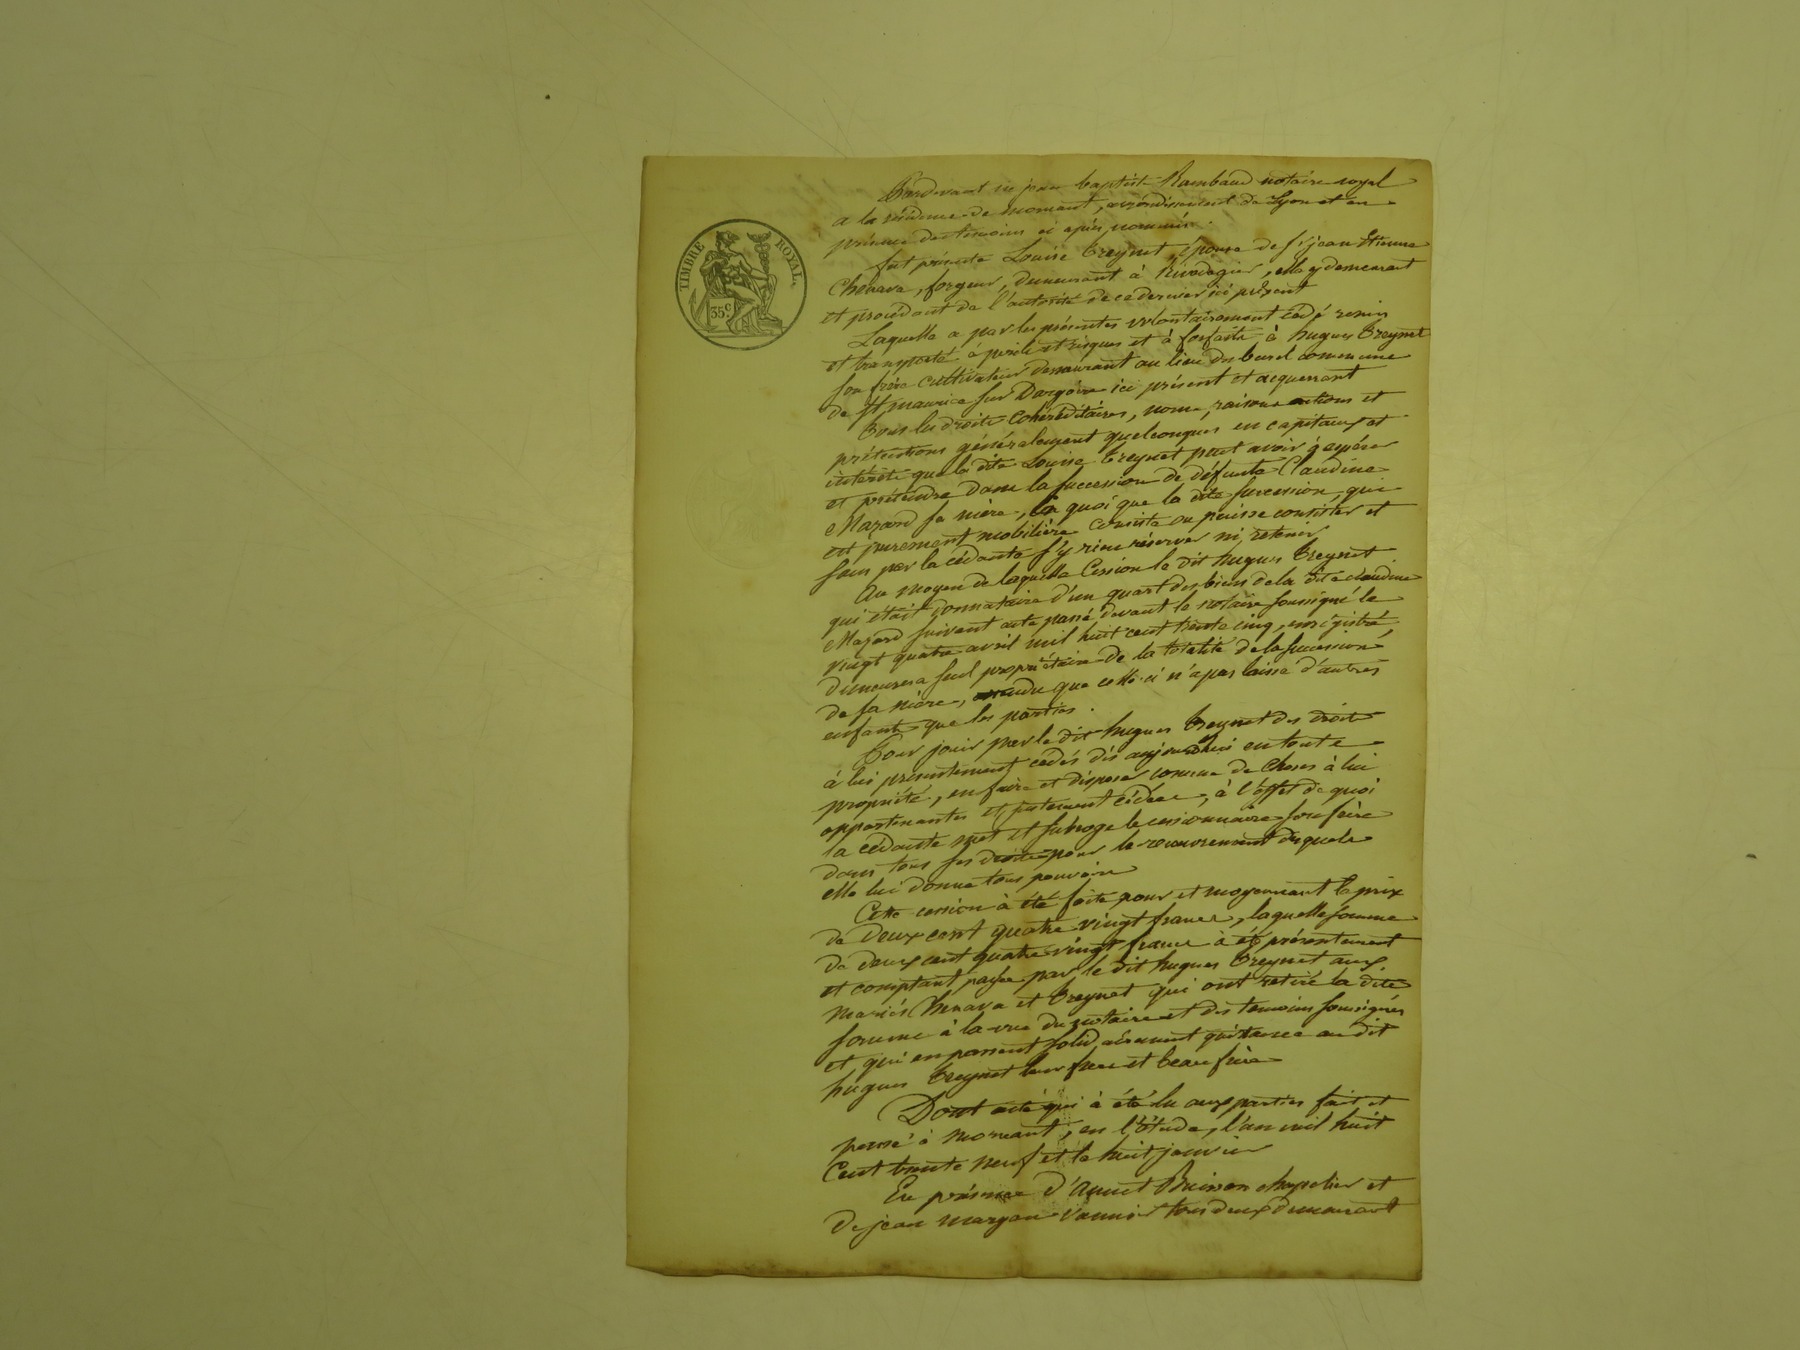 TIMBRE ROYAL
35 c
Pardevant me jean baptiste Rambaud notaire royal
a la résidence de mornant, arrondissement de Lyon et en
présence des temoins ci après nommés.
fut présente Louise Treynet, épouse de Sr jean Etienne
Chenava, forgeur, demeurant à Rivedegier, elle y demeurant
et procédant de l'autorité de ce dernier ici présent
Laquelle a par les présentes volontairement cédé remis
et transporté à périls et risques et à forfaits à hugues Treynet
son frère cultivateur demeurant au lieu du burel commune
de St maurice sur Dargoire ici présent et acquerrant
Tous les droits cohéréditaires, noms, raisons actions et
prétentions généralement quelconques en capitaux et
intérêts que la dite Louise Treynet peut avoir à espérer
et prétendre dans la succession de défunte Claudine
Mazard sa mère, en quoi que la dite succession, qui
est purement mobilière consiste ou puisse consister et
sans par la cédante s'y rien réserver ni retenir
Au moyen de laquelle Cession le dit hugues Treynet
qui était donnataire d'un quart des biens de la dite claudine
Mazard suivant acte passé devant le notaire soussigné le
vingt quatre avril mil huit cent trente cinq, enregistré,
demeurera seul propriétaire de la totalité de la succession
de sa mère, attendu que celle-ci n'a pas laissé d'autres
enfants que les parties.
Pour jouir par le dit hugues Treynet des droits
à lui présentement cédés dès aujourd'hui en toute
propriété, en faire et disposer comme de choses à lui
appartenantes et justement cédées, à l'effet de quoi
la cédante met et subroge le cessionnaire son frère
dans tous ses droits pour le recouvrement desquels
elle lui donne tous pouvoirs
Cette cession à été faite pour et moyennant le prix
de deux cent quatre vingt francs, laquelle somme
de deux cent quatre vingt francs à été présentement
et comptant payée par le dit hugues Treynet aux
mariés Chenava et Treynet qui ont retiré la dite
somme à la vue du notaire et des temoins soussignés
et qui en passent solidairement quittance au dit
hugues Treynet leur frère et beau frère
Dont acte qui à été lu aux parties fait et
passé à mornant, en l'étude, l'an mil huit
Cent trente neuf et le huit janvier
En présence d'Annet Buisson chapelier et
de jean vannier tous deux demeurant